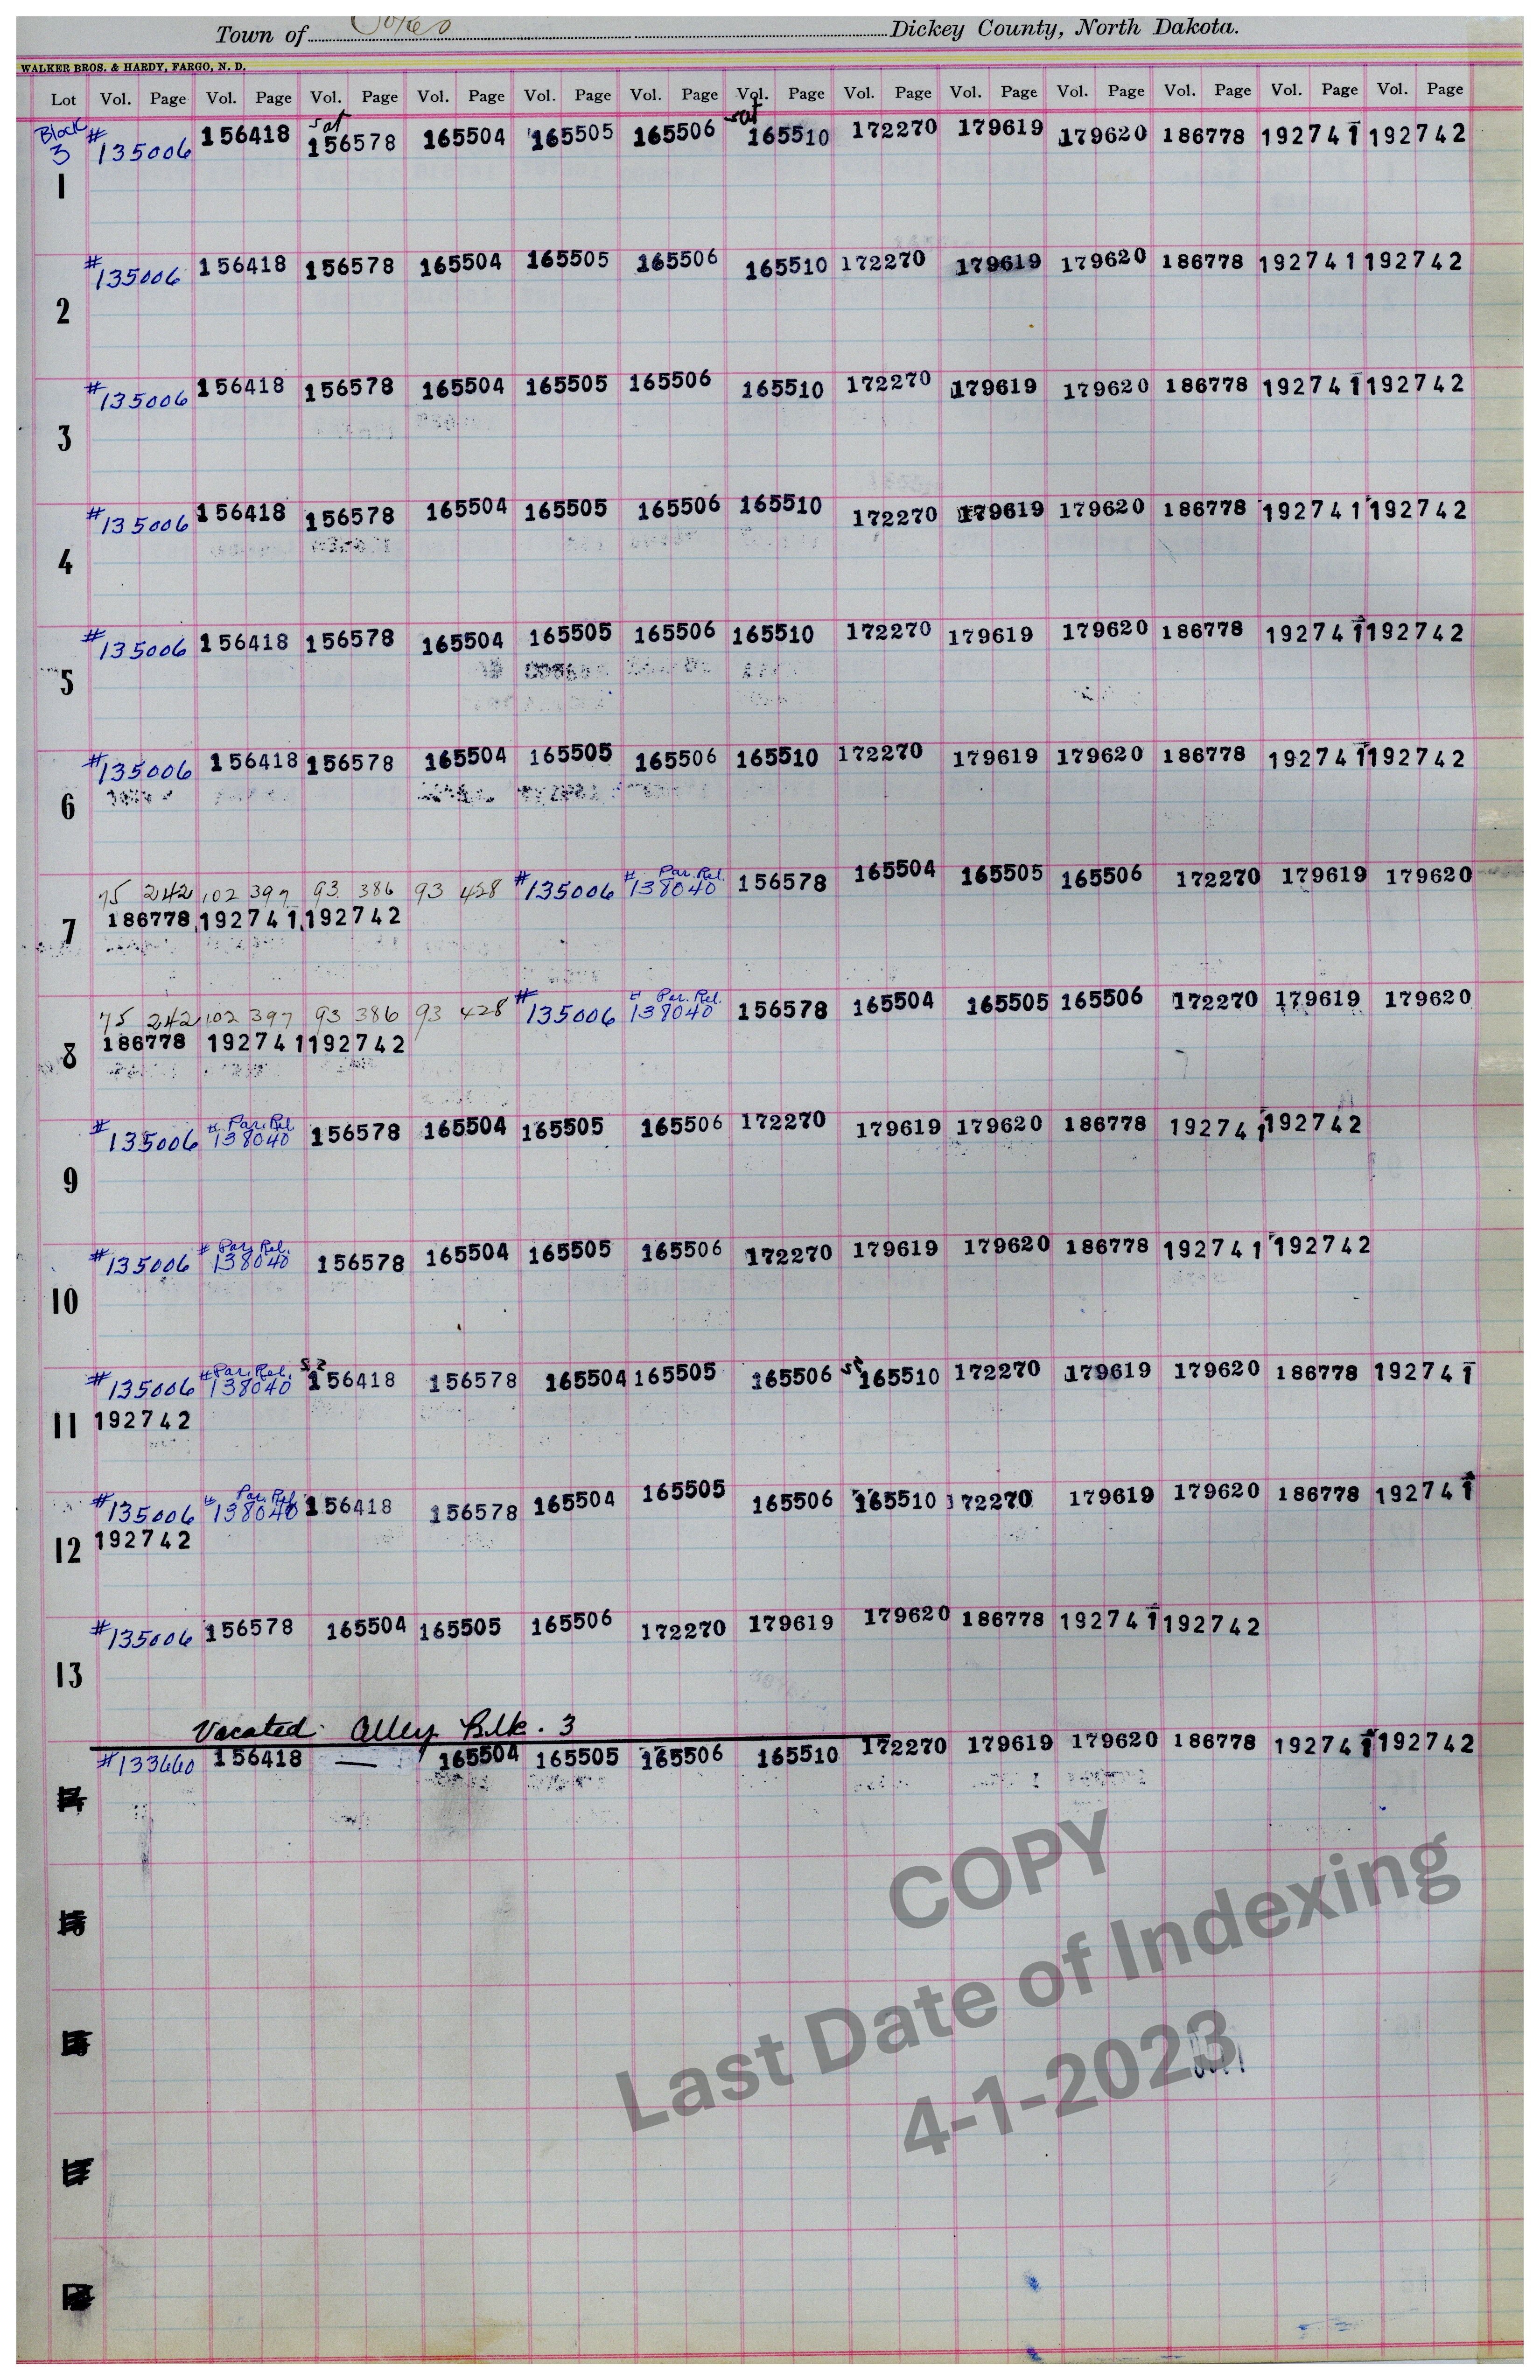 Town of Dickey County, North Dakota.
WALKER BROS. & HARDY, FARGO, N. D.
Lot Vol. Page Vol. Page Vol. Page Vol. Page Vol. Page Vol. Page Vol. Page Vol. Page Vol. Page Vol. Page Vol. Page Vol. Page Vol. Page
Block sat sat
3 #135006 156418 156578 165504 165505 165506 165510 172270 179619 179620 186778 192741 192742
1
#135006 156418 156578 165504 165505 165506 165510 172270 179619 179620 186778 192741 192742
2
#135006 156418 156578 165504 165505 165506 165510 172270 179619 179620 186778 192741 192742
3
#135006 156418 156578 165504 165505 165506 165510 172270 179619 179620 186778 192741 192742
4
#135006 156418 156578 165504 165505 165506 165510 172270 179619 179620 186778 192741 192742
5
#135006 156418 156578 165504 165505 165506 165510 172270 179619 179620 186778 192741 192742
6
# Par. Rel.
75 242 102 397 93 386 93 428 #135006 138040 156578 165504 165505 165506 172270 179619 179620
7 186778 192741 192742
# Par. Rel.
75 242 102 397 93 386 93 428 #135006 138040 156578 165504 165505 165506 172270 179619 179620
8 186778 192741 192742
# Par. Rel
#135006 138040 156578 165504 165505 165506 172270 179619 179620 186778 192741 192742
9
# Par. Rel.
#135006 138040 156578 165504 165505 165506 172270 179619 179620 186778 192741 192742
10
# Par. Rel.
#135006 138040 156418 156578 165504 165505 165506 165510 172270 179619 179620 186778 192741
11 192742
# Par. Rel
#135006 138040 156418 156578 165504 165505 165506 165510 172270 179619 179620 186778 192741
12 192742
#135006 156578 165504 165505 165506 172270 179619 179620 186778 192741 192742
13
Vacated Alley Blk. 3
#133660 156418 — 165504 165505 165506 165510 172270 179619 179620 186778 192741 192742
COPY
Last Date of Indexing
4-1-2023